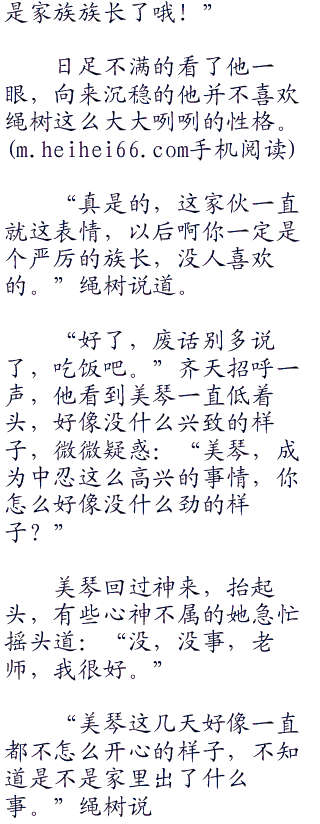 是家族族长了哦！”
日足不满的看了他一
眼，向来沉稳的他并不喜欢
绳树这么大大咧咧的性格。
(m.heihei66.com手机阅读)
“真是的，这家伙一直
就这表情，以后啊你一定是
个严厉的族长，没人喜欢
的。”绳树说道。
“好了，废话别多说
了，吃饭吧。”齐天招呼一
声，他看到美琴一直低着
头，好像没什么兴致的样
子，微微疑惑：“美琴，成
为中忍这么高兴的事情，你
怎么好像没什么劲的样
子？”
美琴回过神来，抬起
头，有些心神不属的她急忙
摇头道：“没，没事，老
师，我很好。”
“美琴这几天好像一直
都不怎么开心的样子，不知
道是不是家里出了什么
事。”绳树说